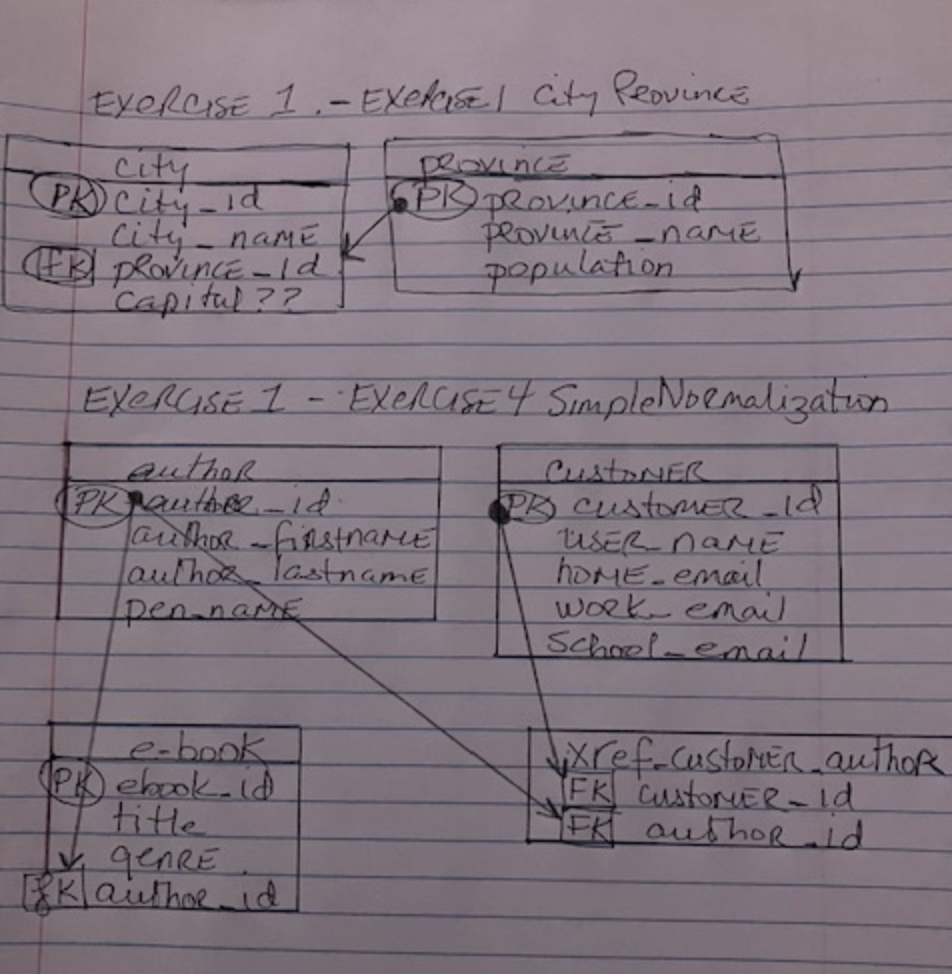 EXERCISE 1 - EXERCISE 1 City Province
City
PK City_id
City_name
FK province_id
Capitul??
province
PK province_id
province_name
population
EXERCISE 1 - EXERCISE 4 SimpleNormalization
author
PK author_id
author_firstname
author_lastname
pen_name
CUSTOMER
PK CUSTOMER_id
USER_NAME
home_email
work_email
School_email
e-book
PK ebook_id
title
genre
FK author_id
Xref_customer_author
FK customer_id
FK author_id